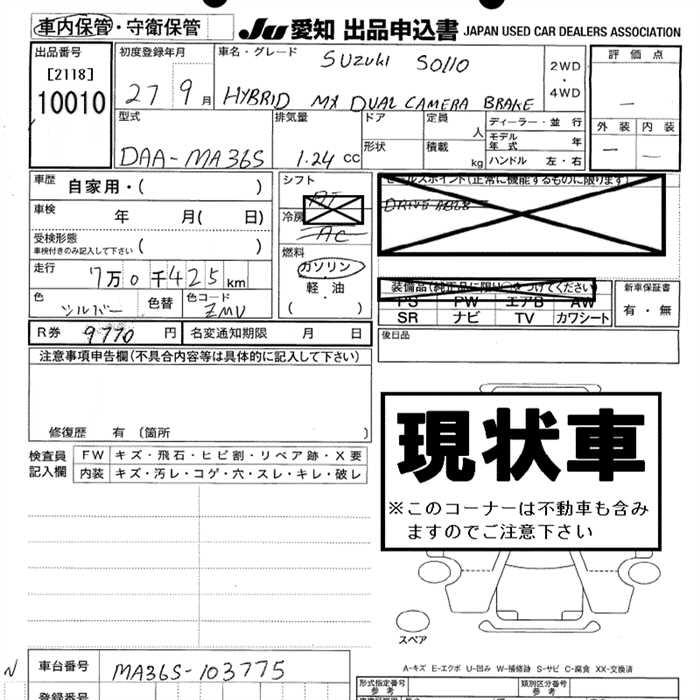 車内保管・守衛保管
JU 愛知 出品申込書 JAPAN USED CAR DEALERS ASSOCIATION
出品番号
[2118]
10010
初度登録年月
27 9 月
車名・グレード
SUZUKI SOLIO
HYBRID MX DUAL CAMERA BRAKE
2WD
・
4WD
評価点
—
外装 内装
— —
型式
DAA-MA36S
排気量
1.24 cc
ドア
形状
定員
人
積載
kg
ディーラー・並行
モデル年式 年
ハンドル 左・右
車歴 自家用・( )
車検 年 月( 日)
受検形態
車検付きのみ記入して下さい ( )
走行 7万0千425km
色 シルバー 色替 色コード ZMV
シフト
AT
冷房
AC
燃料
ガソリン
軽・油
( )
R券 9770 円 名変通知期限 月 日
セールスポイント(正常に機能するものに限ります)
DRIVE ABLE
装備品(純正品に限り○をつけてください)
PS PW エアB AW
SR ナビ TV カワシート
新車保証書
有・無
後日品
注意事項申告欄(不具合内容等は具体的に記入して下さい)
修復歴 有 〔箇所 〕
検査員記入欄
FW キズ・飛石・ヒビ割・リペア跡・X要
内装 キズ・汚レ・コゲ・穴・スレ・キレ・破レ
現状車
※このコーナーは不動車も含み
ますのでご注意下さい
スペア
A-キズ E-エクボ U-凹み W-補修跡 S-サビ C-腐食 XX-交換済
N 車台番号 MA36S-103775
登録番号
形式指定番号
参考
類別区分番号
参考